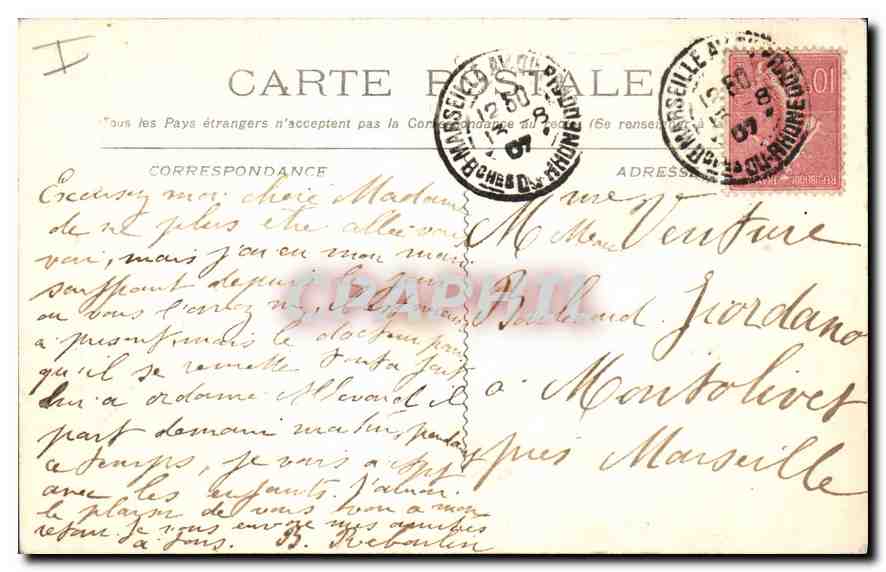 I
CARTE POSTALE
Tous les Pays étrangers n'acceptent pas la Correspondance au recto (Se renseigner à la
CORRESPONDANCE
ADRESSE
MARSEILLE AV. DU PRADO
12 50
13 - 8
07
BCHES DU RHONE
MARSEILLE AV. DU PRADO
12 50
13 - 8
07
BCHES DU RHONE
10
Excusez moi chère Madame
de ne plus être allée vous
voir, mais j'ai eu mon mari
souffrant depuis le jour
ou vous l'avez vu, il est mieux
a présent, mais le docteur pour
qu'il se remette tout a fait
lui a ordonné Allevard il
part demain matin, pendant
ce temps, je vais a
avec les enfants. J'aurai
le plaisir de vous voir a mon
retour. Je vous envoie mes amitiés
a tous. B. Reboulin
Mme
Venture
Boulevard Jiordano
a Montolivet
près Marseille
CPAPHIL